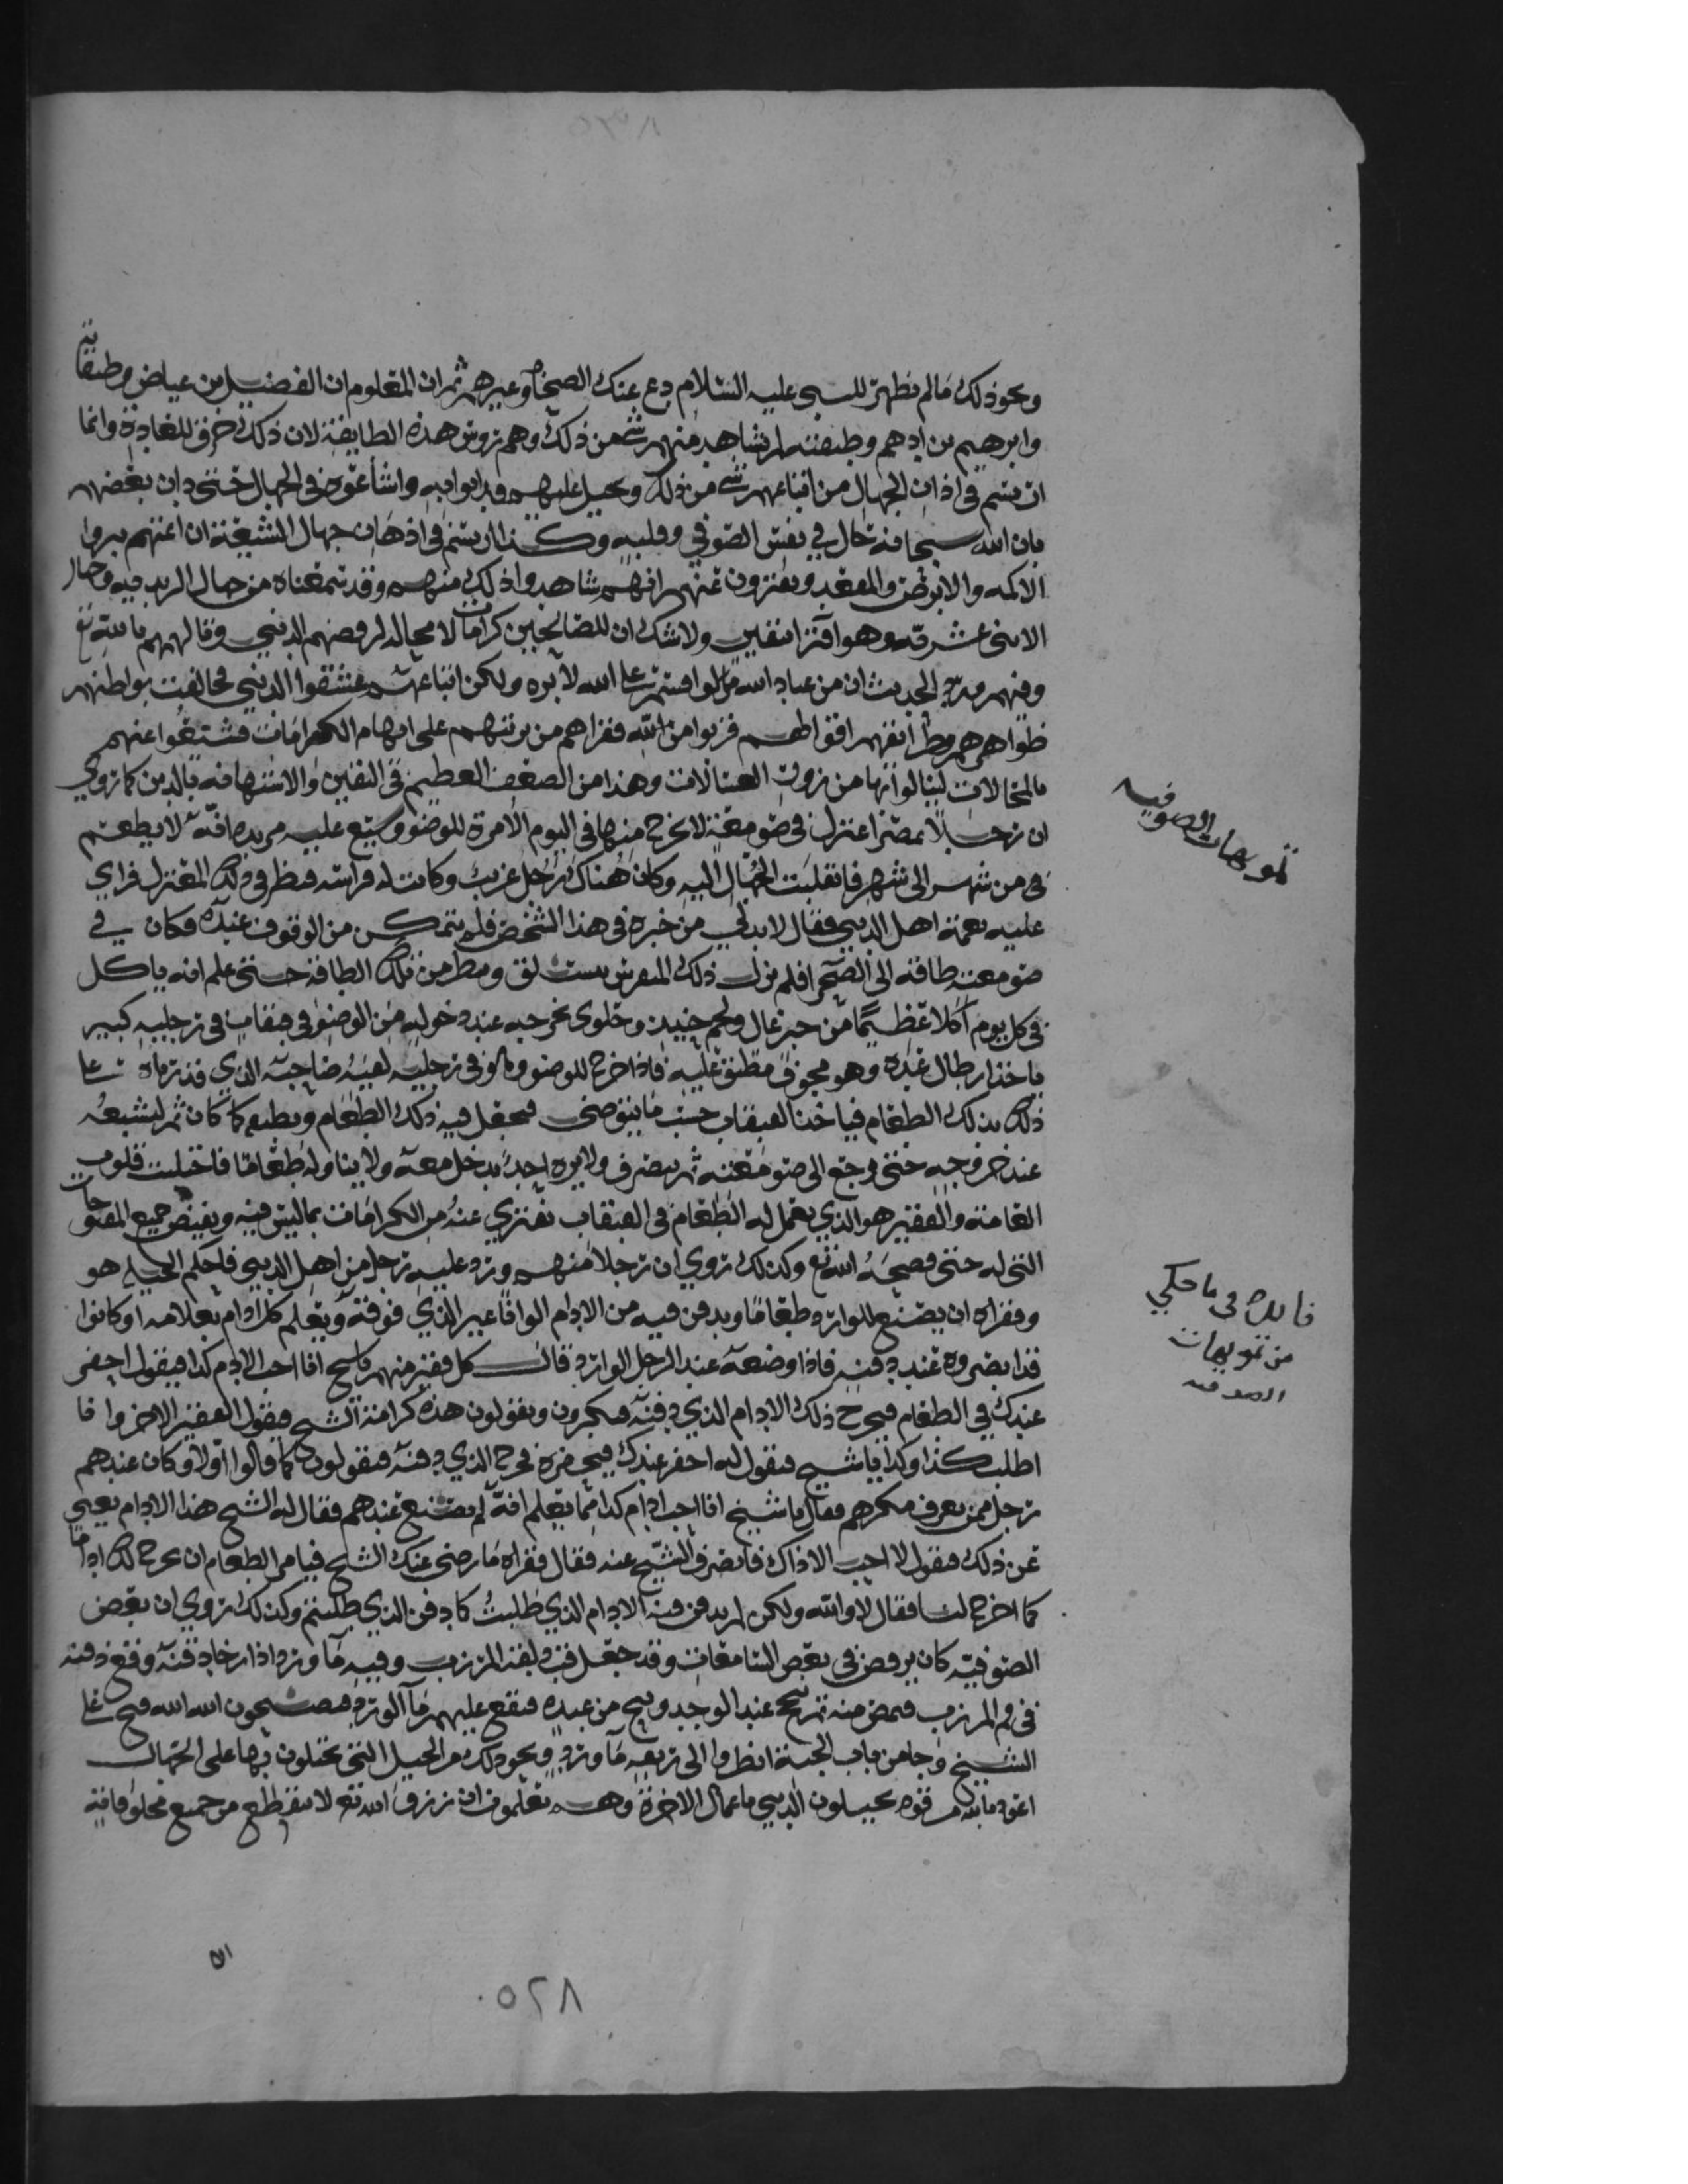 ونحو ذلك مالم يظهر للنبي عليه السلام دع عنك الصحابة وغيرهم ثم ان المعلوم ان الفضيل بن عياض وطبقاته
وابرهيم بن ادهم وطبقته لم يشاهد منهم شي من ذلك وهم رؤس هذه الطايفة لان ذلك خرق للعادة وانما
ارتسم في اذان الجهال من اتباعهم شي من ذلك وتحيل عليهم فدانوا به واشاعوه في الجهال حتى دان بعضهم
بان الله سبحانه حال في نفس الصوفي وقلبه وكذا ارتسم في اذهان جهال الشيعة ان ائمتهم يبروا
الاكمه والابرص والمقعد ويفترون عنهم انهم شاهدوا ذلك منهم وقد سمعناه من جهال الزيديه وجهال
الاثنى عشريه وهو افترا متقين ولا شك ان للصالحين كرامات لا محالة لرفضهم الدنيى وقالهم بالله تع
وفيهم ورد الحديث ان من عباد الله من لو اقسم على الله لابره ولكن اتباعهم عشقوا الدنيى فخالفت بواطنهم
ظواهرهم وظرايفهم اقوالهم قربوا من الله ففراهم من بربتهم على ابهام الكرامات فشنعوا عنهم
بالمحالات لينالوا بها من نزوت العسالات وهذا من الضعف العظيم في اليقين والاستهانه بالدين كما روي
ان رجلا بمصر اعتزل في صومعة لا يخرج منها في اليوم الا مرة للوضو وشيع عليه مريده انه لا يطعم
في من شهر الى شهر فانقلبت الجهال اليه وكان هناك رجل غريب وكانت له فراسه فنظر في ذلك المعتزل فراى
عليه نعمة اهل الدنيى فقال لابد لي من خبرة في هذا الشخص فلم يتمكن من الوقوف عنده وكان في
صومعته طاقة الى الصحرا فلم يزل ذلك المفرس يستلق وينظر من تلك الطاقة حتى علم انه ياكل
في كل يوم اكلا عظيما من خبز عال ولحم جنيد وحلوى يخرجه عند دخوله من الوضو في قبقاب في رجليه كبير
ياخذ ارطال عده وهو مجوف مطبق عليه فاذا خرج للوضو وهو في رجليه لقيه صاحبه الذي قد رماه على
ذلك بذلك الطعام فياخذ القبقاب حيث ما يتوضى فيجعل فيه ذلك الطعام ويطبع كما كان ثم يشيعه
عند خروجه حتى يرجع الى صومعته ثم ينصرف ولا يره احد يدخل معه ولا يناوله طعاما فاختبلت قلوب
العامة والفقير هو الذي يعمل له الطعام في القبقاب يفتري عنه من الكرامات بما ليس فيه ويقبض جميع الفتوحات
التي له حتى فضحه الله تع وكذلك روي ان رجلا منهم ورد عليه رجل من اهل الدنيى فاحكم الحيله هو
وفقراه ان يصنع للوارد طعاما ويدفن فيه من الادام الوانا غير الذي فوقه ويعلم كل ادام بعلامه او كانوا
قد ابصروه عند دفنه فاذا وضعه عند الرجل الوارد قال كل فقير منهم ياشيخ انا احب الادام كذا فيقول احفر
عندك في الطعام فيخرج ذلك الادام الذي دفنه فيكبرون ويقولون هذه كرامة الشيخ فيقول الفقير الاخر وانا
اطلب كذا وكذا ياشيخ فيقول له احفر عندك فيحفره فيخرج الذي دفنه فيقولون كما قالوا اولا وكان عندهم
رجل ممن يعرف مكرهم فقال ياشيخ انا احب ادام كذا مما يعلم انه لم يصنع عندهم فقال له الشيخ هذا الادام يغني
عن ذلك فيقول لا احب الا ذاك فانصرف الشيخ عنه فقال فقراه مارضى عنك الشيخ فيامر الطعام ان يخرج لك اداما
كما اخرج لنا فقال لا والله ولكن لم يدفن فيه الادام الذي طلبت كما دفن الذي طلبتم وكذلك روي ان بعض
الصوفيه كان يرقص في بعض السماعات وقد جعل في لفته المزرب وفيه ما ورد اذا رخا دقنه وقع دقنه
في فم المزرب فمص منه ثم يبح عند الوجد ويبح من عنده فيقع عليهم ما الورد فيصيحون الله الله فتح على
الشيخ وجا من باب الجنة انظروا الى ريقه ما ورد ونحو ذلك من الحيل التي يختلون بها على الجهال
اعوذ بالله من قوم يحيلون الدنيى باعمال الاخرة وهم يعلمون ان رزق الله تع لا ينقطع من جميع مخلوقاته
تمويهات الصوفيه
فائدة في ما حكي
من تمويهات
الصوفيه
٥٢٨